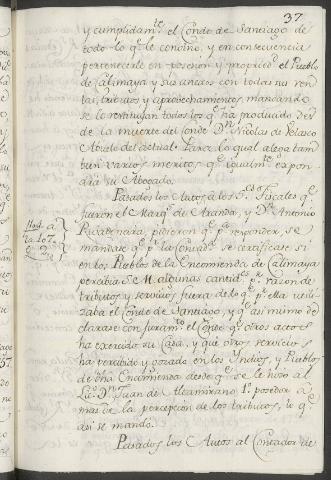 37
y cumplidamte. el Conde de Santiago de
todo lo qe. le convino, y en consecuencia
pertenecerle en posesion y propried. el Pueblo
de Calimaya y sus anexos con todas sus ren
tas, tributos y aprovechamientos, mandando
se le restituyan todos los qe. ha producido des
de la muerte del Conde Dn. Nicolas de Velasco
Abuelo del actual. Para lo qual alega tam
bien varios meritos qe. igualmte. expon
dra su Abogado.
Pasados los Autos a los Ses. Fiscales qe.
fueron el Marqs. de Aranda, y Dn. Antonio
Rivadeneira, pidieron qe. pa. responder, se
mandase qe. pr. la Contadª. se certificase si
en los Pueblos de la Encomienda de Calimaya
percebia S. M. algunas cantides. pr. razon de
tributos, y servicios fuera de lo qe. pr. ella utili
zaba el Conde de Santiago, y qe. asi mismo de
clarase con juramto. el Conde qe. otros actos
ha exercido su Casa, y que otros servicios
ha percibido y gozado en los Yndios, y Pueblos
de dha Encomienda desde qe. se le hizo al
Lic. Dn. Juan de Altamirano 1º. posedor a
mas de la percepcion de los tributos, lo qe.
asi se mandó.
Pasados los Autos al Contador de